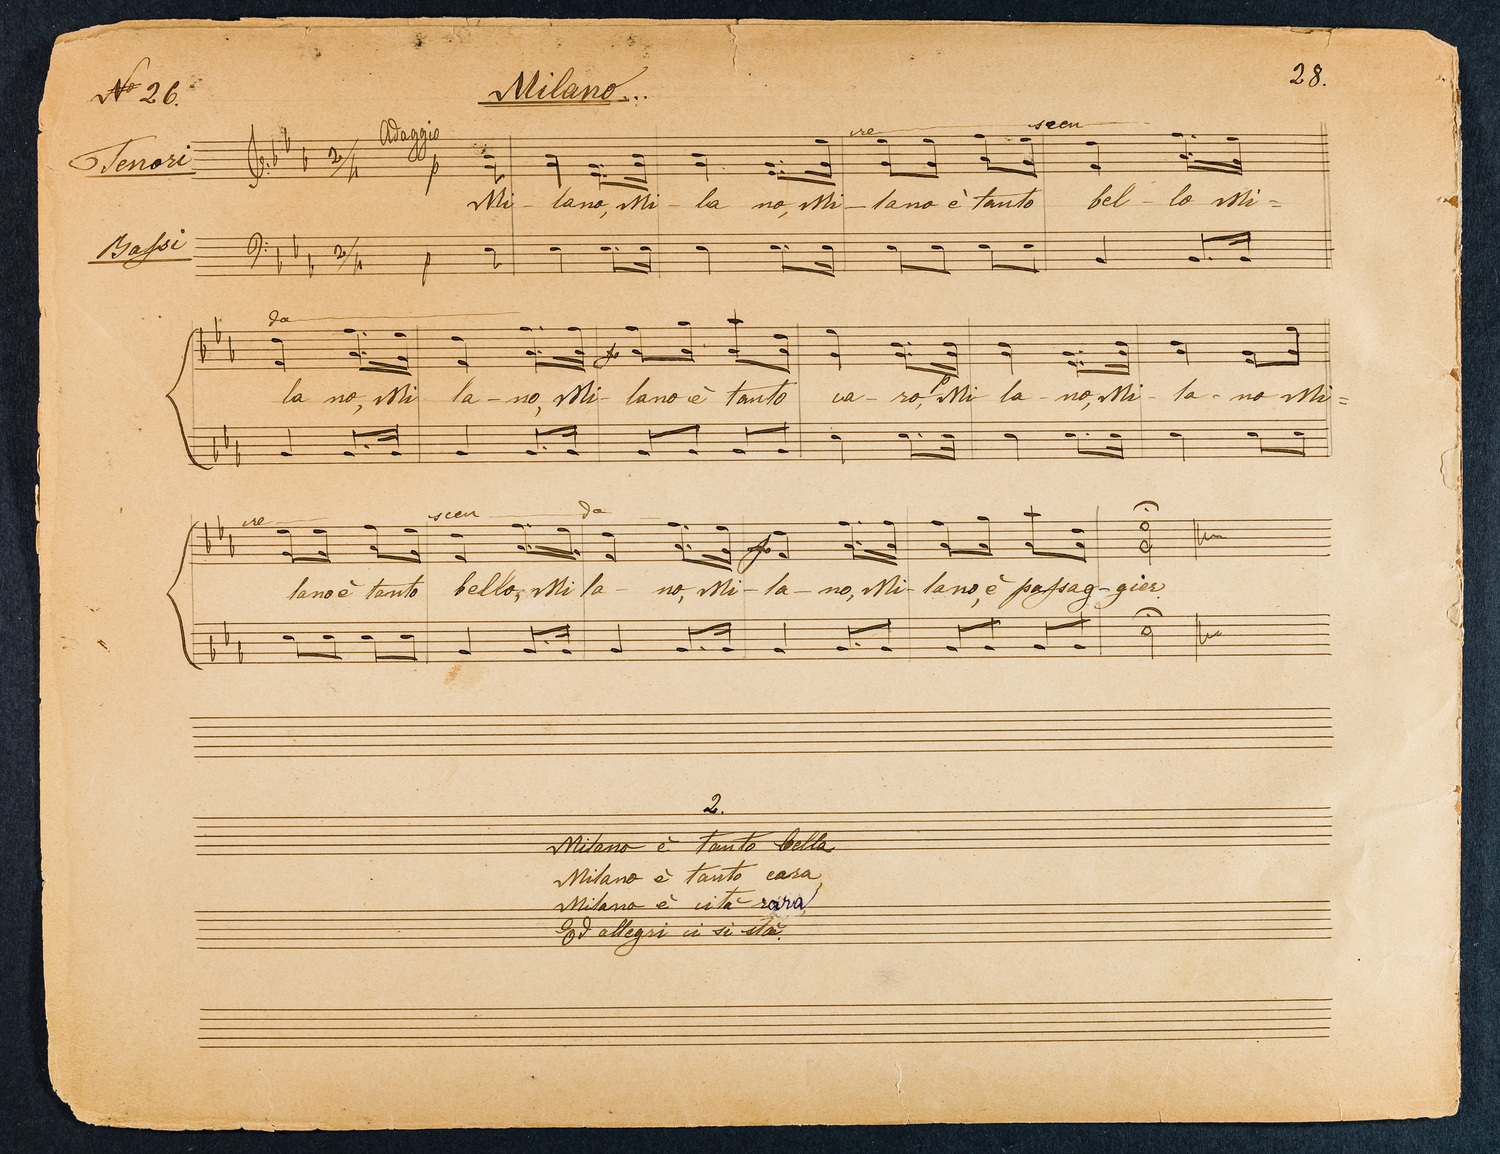 No 26.
Milano...
28.
Adaggio
cre scen
Tenori
Mi - lano, Mi - la no, Mi - lano è tanto bel - lo Mi =
Bassi
do
la no, Mi la - no, Mi - lano è tanto ca - ro, Mi la - no, Mi - la - no Mi =
cre scen do
lano è tanto bello, Mi la - no, Mi - la - no, Mi - lano, è passag - gier.
2.
Milano è tanto bella
Milano è tanto cara,
Milano è cità rara,
Ed allegri ci si stà.